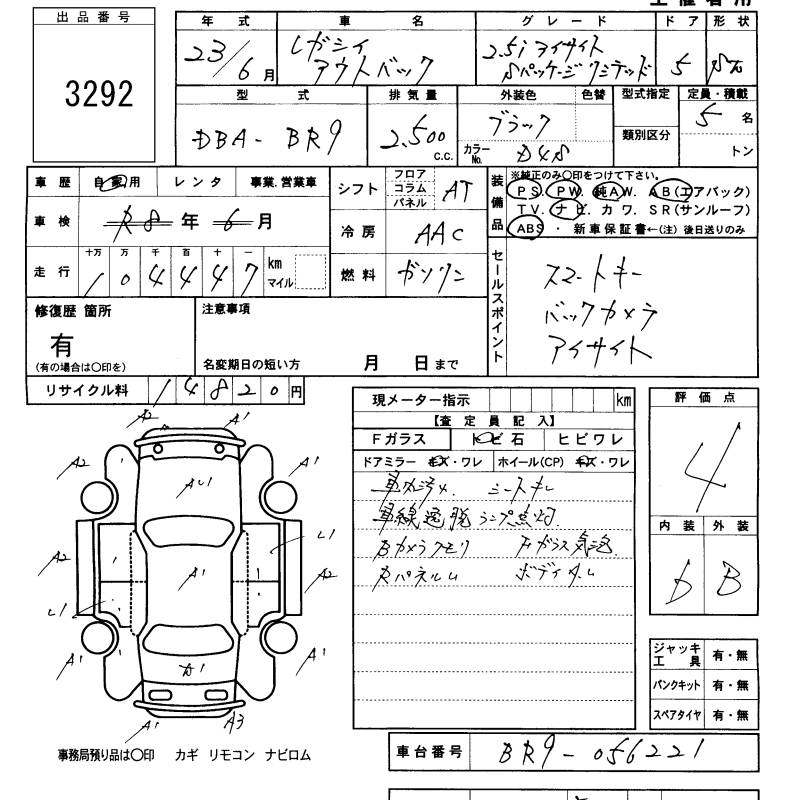 出品番号
3292
年式 車名 グレード ドア 形状
23/6月 レガシィ アウトバック 2.5i アイサイト Sパッケージ リミテッド 5
型式 排気量 外装色 色替 型式指定 定員・積載
DBA-BR9 2,500 c.c. ブラック カラーNo. D4S 類別区分 5名 トン
車歴 自家用 レンタ 事業.営業車
車検 R8年6月
走行 十万 万 千 百 十 一
104447 km マイル
シフト フロア コラム パネル AT
冷房 AAC
燃料 ガソリン
装備品 ※純正のみ〇印をつけて下さい。
PS. PW. 純AW. AB(エアバック)
TV. ナビ. カワ. SR(サンルーフ)
ABS ・ 新車保証書←(注) 後日送りのみ
セールスポイント
スマートキー
バックカメラ
アイサイト
修復歴 箇所
有
(有の場合は〇印を)
注意事項
名変期日の短い方 月 日まで
リサイクル料 14820円
現メーター指示 km
【査定員記入】
Fガラス トビ石 ヒビワレ
ドアミラー キズ・ワレ ホイール(CP) キズ・ワレ
車内汚れ. シートキレ
車線逸脱ランプ点灯
Bカメラクモリ Fガラス気泡
Rパネルム ボディ
評価点
4
内装 外装
D B
ジャッキ 工具 有・無
パンクキット 有・無
スペアタイヤ 有・無
A2 A1
A2 A1
AU1
L1
A2 A1 A2
L1
A1 A1
A1
A1 A3
事務局預り品は〇印 カギ リモコン ナビロム
車台番号 BR9-056221